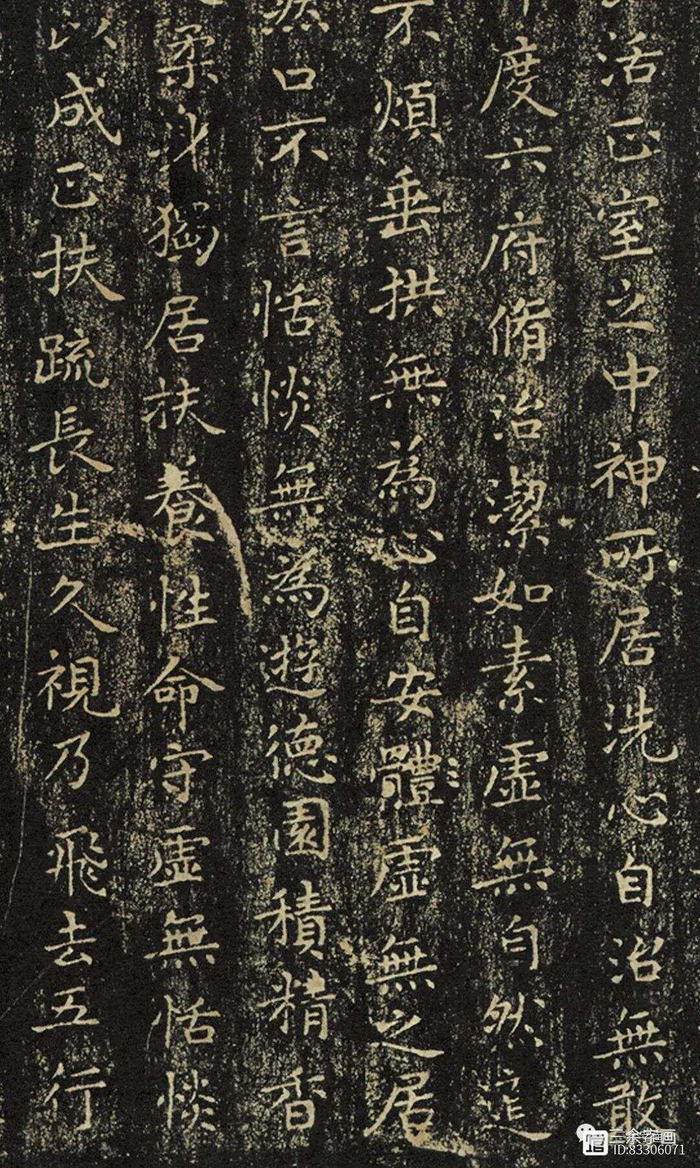 活正室之中神所居洗心自治無敢
度六府脩治潔如素虛無自然
不煩垂拱無為心自安體虛無之居
然口不言恬惔無為遊德園積精香
柔身獨居扶養性命守虛無恬惔
以成正扶疏長生久視乃飛去五行
三余书画
ID:83306071